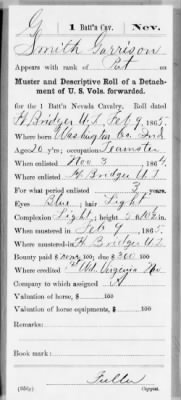 G | 1 Batt'n Cav. | Nev.
Smith Garrison
Appears with rank of Pvt on
Muster and Descriptive Roll of a Detach-
ment of U. S. Vols. forwarded.
for the 1 Batt'n Nevada Cavalry. Roll dated
Ft Bridger U.T. Feb 9, 1865.
Where born Washington Co. Ind
Age 20 y'rs; occupation Teamster
When enlisted Nov 3, 1864.
Where enlisted Ft Bridger U.T
For what period enlisted 3 years.
Eyes Blue; hair Light
Complexion Light; height 5 ft. 10½ in.
When mustered in Feb 9, 1865.
Where mustered in Ft Bridger U.T.
Bounty paid $ 100; due $ 300 100
Where credited Virginia Nev
Company to which assigned
Valuation of horse, $ 100
Valuation of horse equipments, $ 100
Remarks:
Book mark:
Fuller
(356g) Copyist.